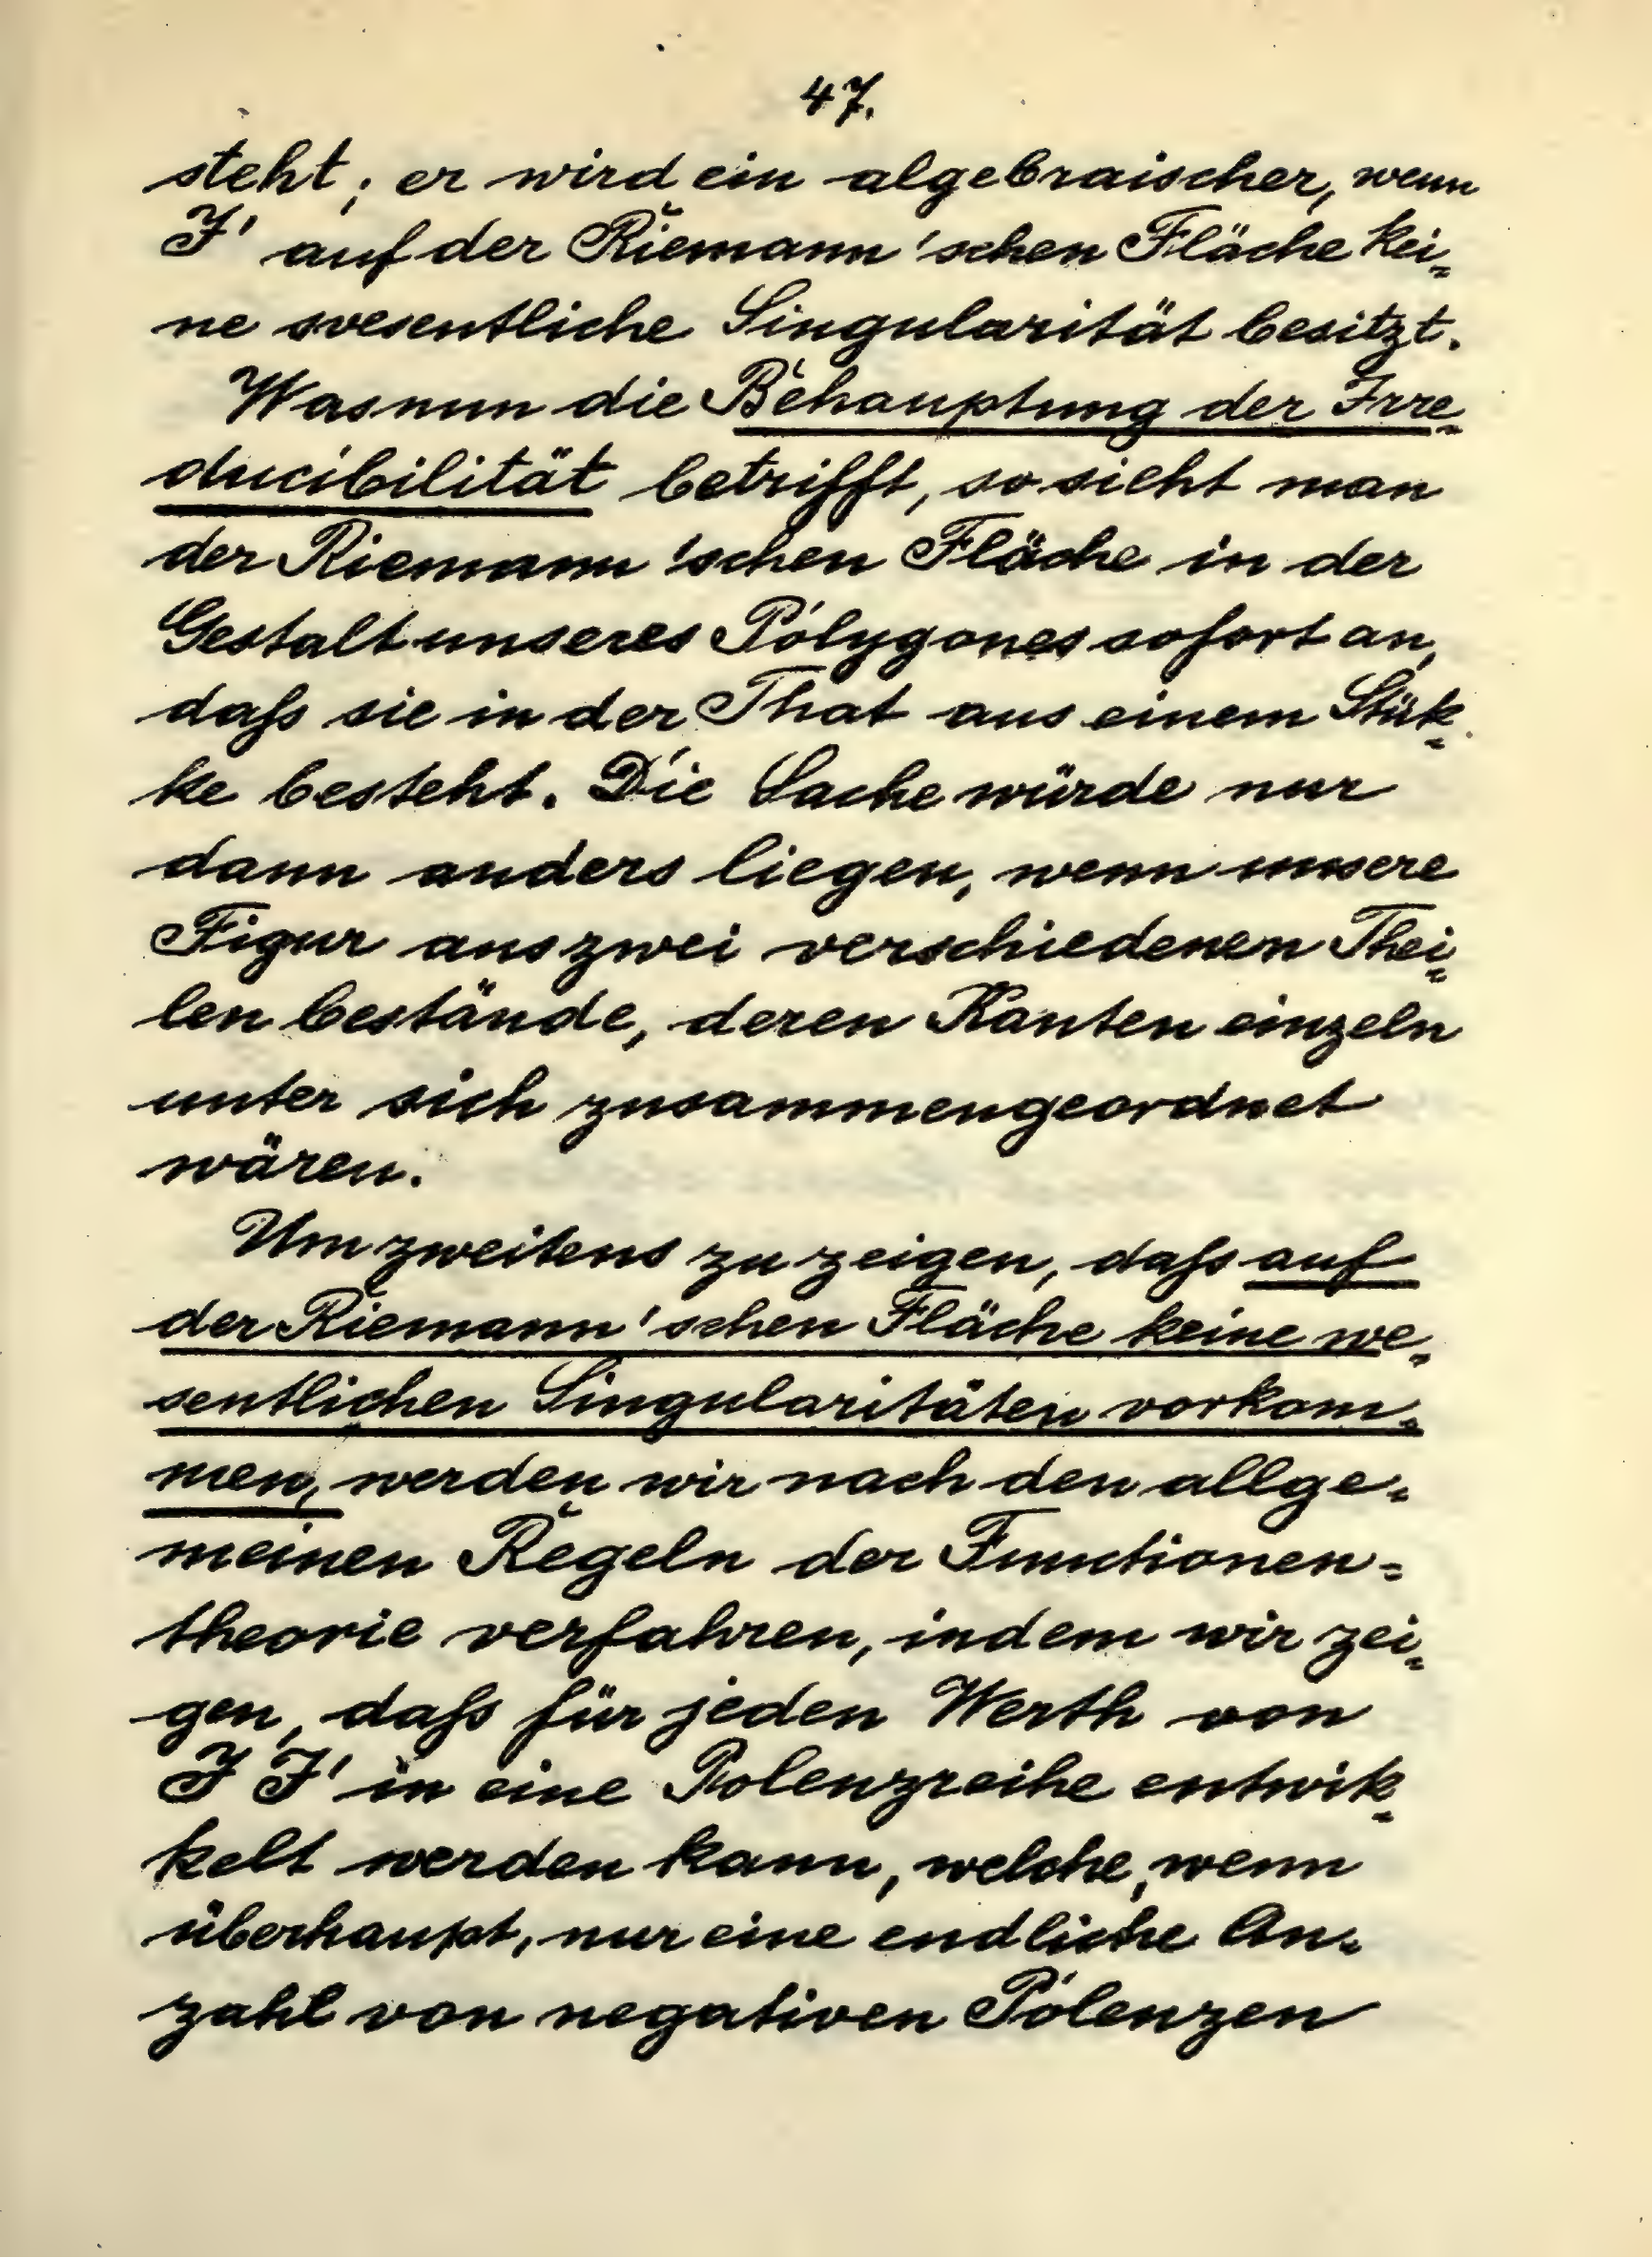 47.
steht; er wird ein algebraischer, wenn
J' auf der Riemann'schen Fläche kei-
ne wesentliche Singularität besitzt.
Was nun die Behauptung der Irre-
ducibilität betrifft, so sieht man
der Riemann'schen Fläche in der
Gestalt unseres Polygones sofort an,
daſs sie in der That aus einem Stük-
ke besteht. Die Sache würde nur
dann anders liegen, wenn unsere
Figur aus zwei verschiedenen Thei-
len bestände, deren Kanten einzeln
unter sich zusammengeordnet
wären.
Um zweitens zu zeigen, daſs auf
der Riemann'schen Fläche keine we-
sentlichen Singularitäten vorkom-
men, werden wir nach den allge-
meinen Regeln der Functionen-
theorie verfahren, indem wir zei-
gen, daſs für jeden Werth von
J J' in eine Potenzreihe entwik-
kelt werden kann, welche, wenn
überhaupt, nur eine endliche An-
zahl von negativen Potenzen